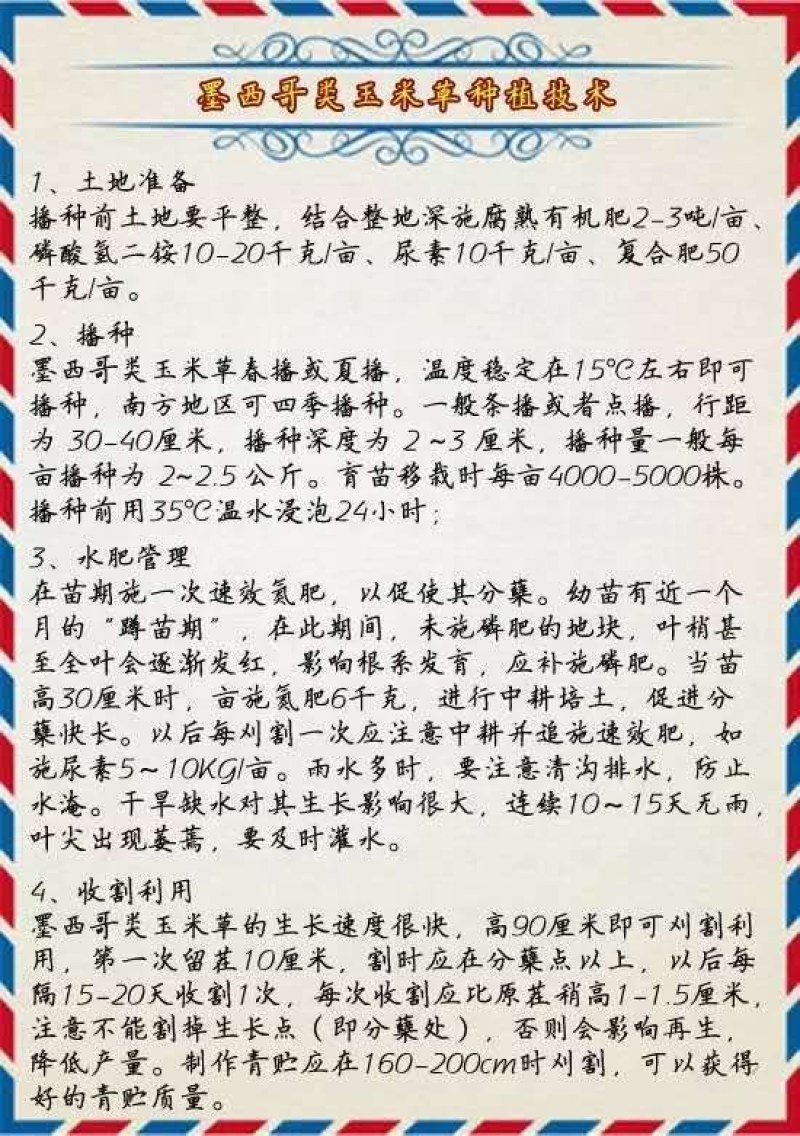 墨西哥类玉米草种植技术
1、土地准备
播种前土地要平整，结合整地深施腐熟有机肥2-3吨/亩、
磷酸氢二铵10-20千克/亩、尿素10千克/亩、复合肥50
千克/亩。
2、播种
墨西哥类玉米草春播或夏播，温度稳定在15℃左右即可
播种，南方地区可四季播种。一般条播或者点播，行距
为 30-40厘米，播种深度为 2～3 厘米，播种量一般每
亩播种为 2~2.5 公斤。育苗移栽时每亩4000-5000株。
播种前用35℃温水浸泡24小时；
3、水肥管理
在苗期施一次速效氮肥，以促使其分蘖。幼苗有近一个
月的“蹲苗期”，在此期间，未施磷肥的地块，叶梢甚
至全叶会逐渐发红，影响根系发育，应补施磷肥。当苗
高30厘米时，亩施氮肥6千克，进行中耕培土，促进分
蘖快长。以后每刈割一次应注意中耕并追施速效肥，如
施尿素5～10KG/亩。雨水多时，要注意清沟排水，防止
水淹。干旱缺水对其生长影响很大，连续10～15天无雨，
叶尖出现萎蔫，要及时灌水。
4、收割利用
墨西哥类玉米草的生长速度很快，高90厘米即可刈割利
用，第一次留茬10厘米，割时应在分蘖点以上，以后每
隔15-20天收割1次，每次收割应比原茬稍高1-1.5厘米，
注意不能割掉生长点（即分蘖处），否则会影响再生，
降低产量。制作青贮应在160-200cm时刈割，可以获得
好的青贮质量。